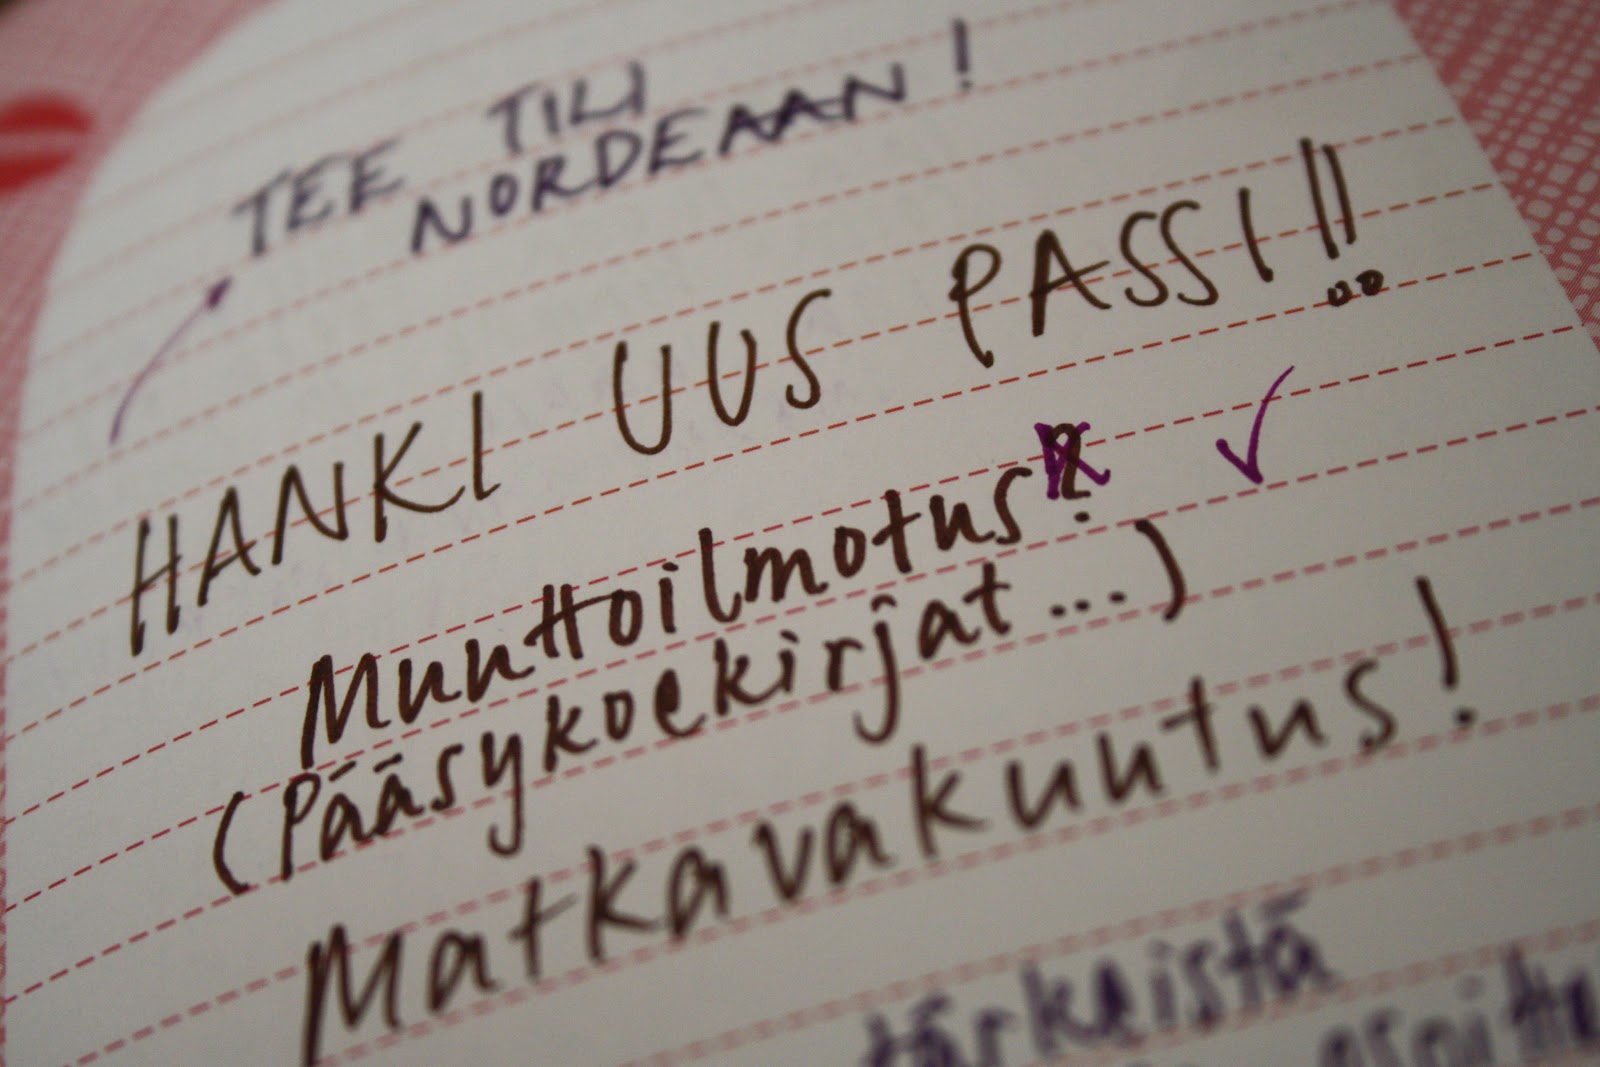 TEE TILI
NORDEAAN!
HANKI UUS PASSI!!
Muuttoilmotus?
(Pääsykoekirjat...)
Matkavakuutus!
tärkeistä